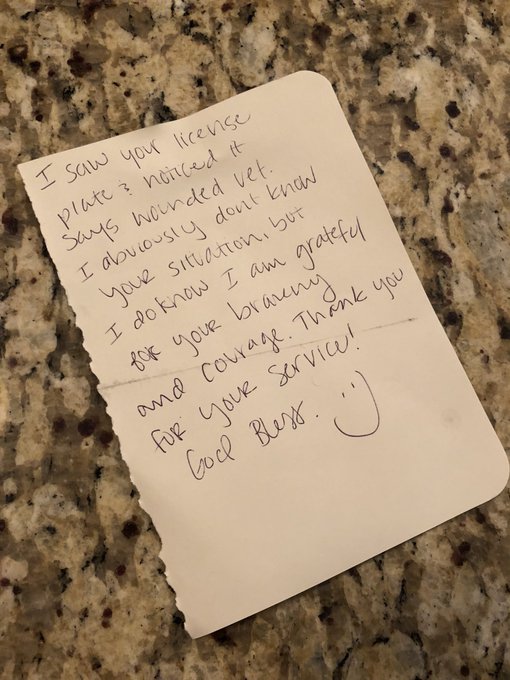 I saw your license
plate & noticed it
says wounded vet.
I obviously don't know
your situation, but
I do know I am grateful
for your bravery
and courage. Thank you
for your service!
God Bless. :)